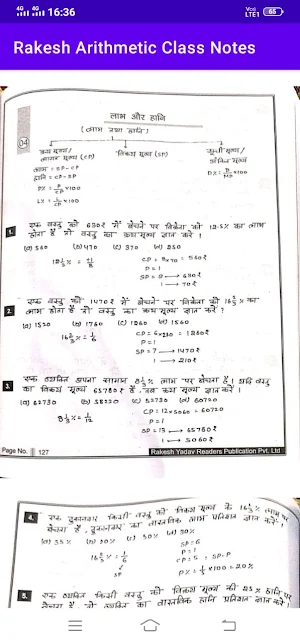 4G 4G 16:36 Vo) LTE1 65
Rakesh Arithmetic Class Notes
04
लाभ और हानि
(लाभ तथा हानि)
क्रय मूल्य/ लागत मूल्य (CP) विक्रय मूल्य (SP) सूची मूल्य/ अंकित मूल्य
लाभ = SP-CP
हानि = CP-SP
P% = P/CP ×100
L% = L/CP ×100
D% = D/MP ×100
1. एक वस्तु को 630₹ में बेचने पर विक्रेता को 12.5% का लाभ
होता है तो वस्तु का क्रय मूल्य ज्ञात करें।
(a) 560 (b) 470 (c) 370 (d) 250
12½% = 1/8
CP = 8×70 = 560₹
P = 1
SP = 9 → 630₹
1 → 70₹
2. एक वस्तु को 1470₹ में बेचने पर विक्रेता को 16⅔% का
लाभ होता है तो वस्तु का क्रय मूल्य ज्ञात करें।
(a) 1520 (b) 1760 (c) 1260 (d) 1560
16⅔% = 1/6
CP = 6×210 = 1260₹
P = 1
SP = 7 → 1470₹
1 → 210₹
3. एक व्यक्ति अपना सामान 8⅓% लाभ पर बेचता है। यदि वस्तु
का विक्रय मूल्य 65780₹ है तब क्रय मूल्य ज्ञात करें।
(a) 62730 (b) 58220 (c) 52730 (d) 60720
8⅓% = 1/12
CP = 12×5060 = 60720
P = 1
SP = 13 → 65780₹
1 → 5060₹
Page No. 127 Rakesh Yadav Readers Publication Pvt. Ltd
4. एक दुकानदार किसी वस्तु को विक्रय मूल्य के 16⅔% लाभ पर
बेचता है, दुकानदार का वास्तविक लाभ प्रतिशत ज्ञात करें।
(b) 20% (c) 30%
16⅔% = 1/6
SP
SP = 6
P = 1
CP = 5 = SP-P
P% = 1/5 ×100 = 20%
5. एक व्यक्ति किसी वस्तु को विक्रय मूल्य की 25% हानि पर
बेचता है, तो व्यक्ति का वास्तविक हानि प्रतिशत ज्ञात करें।